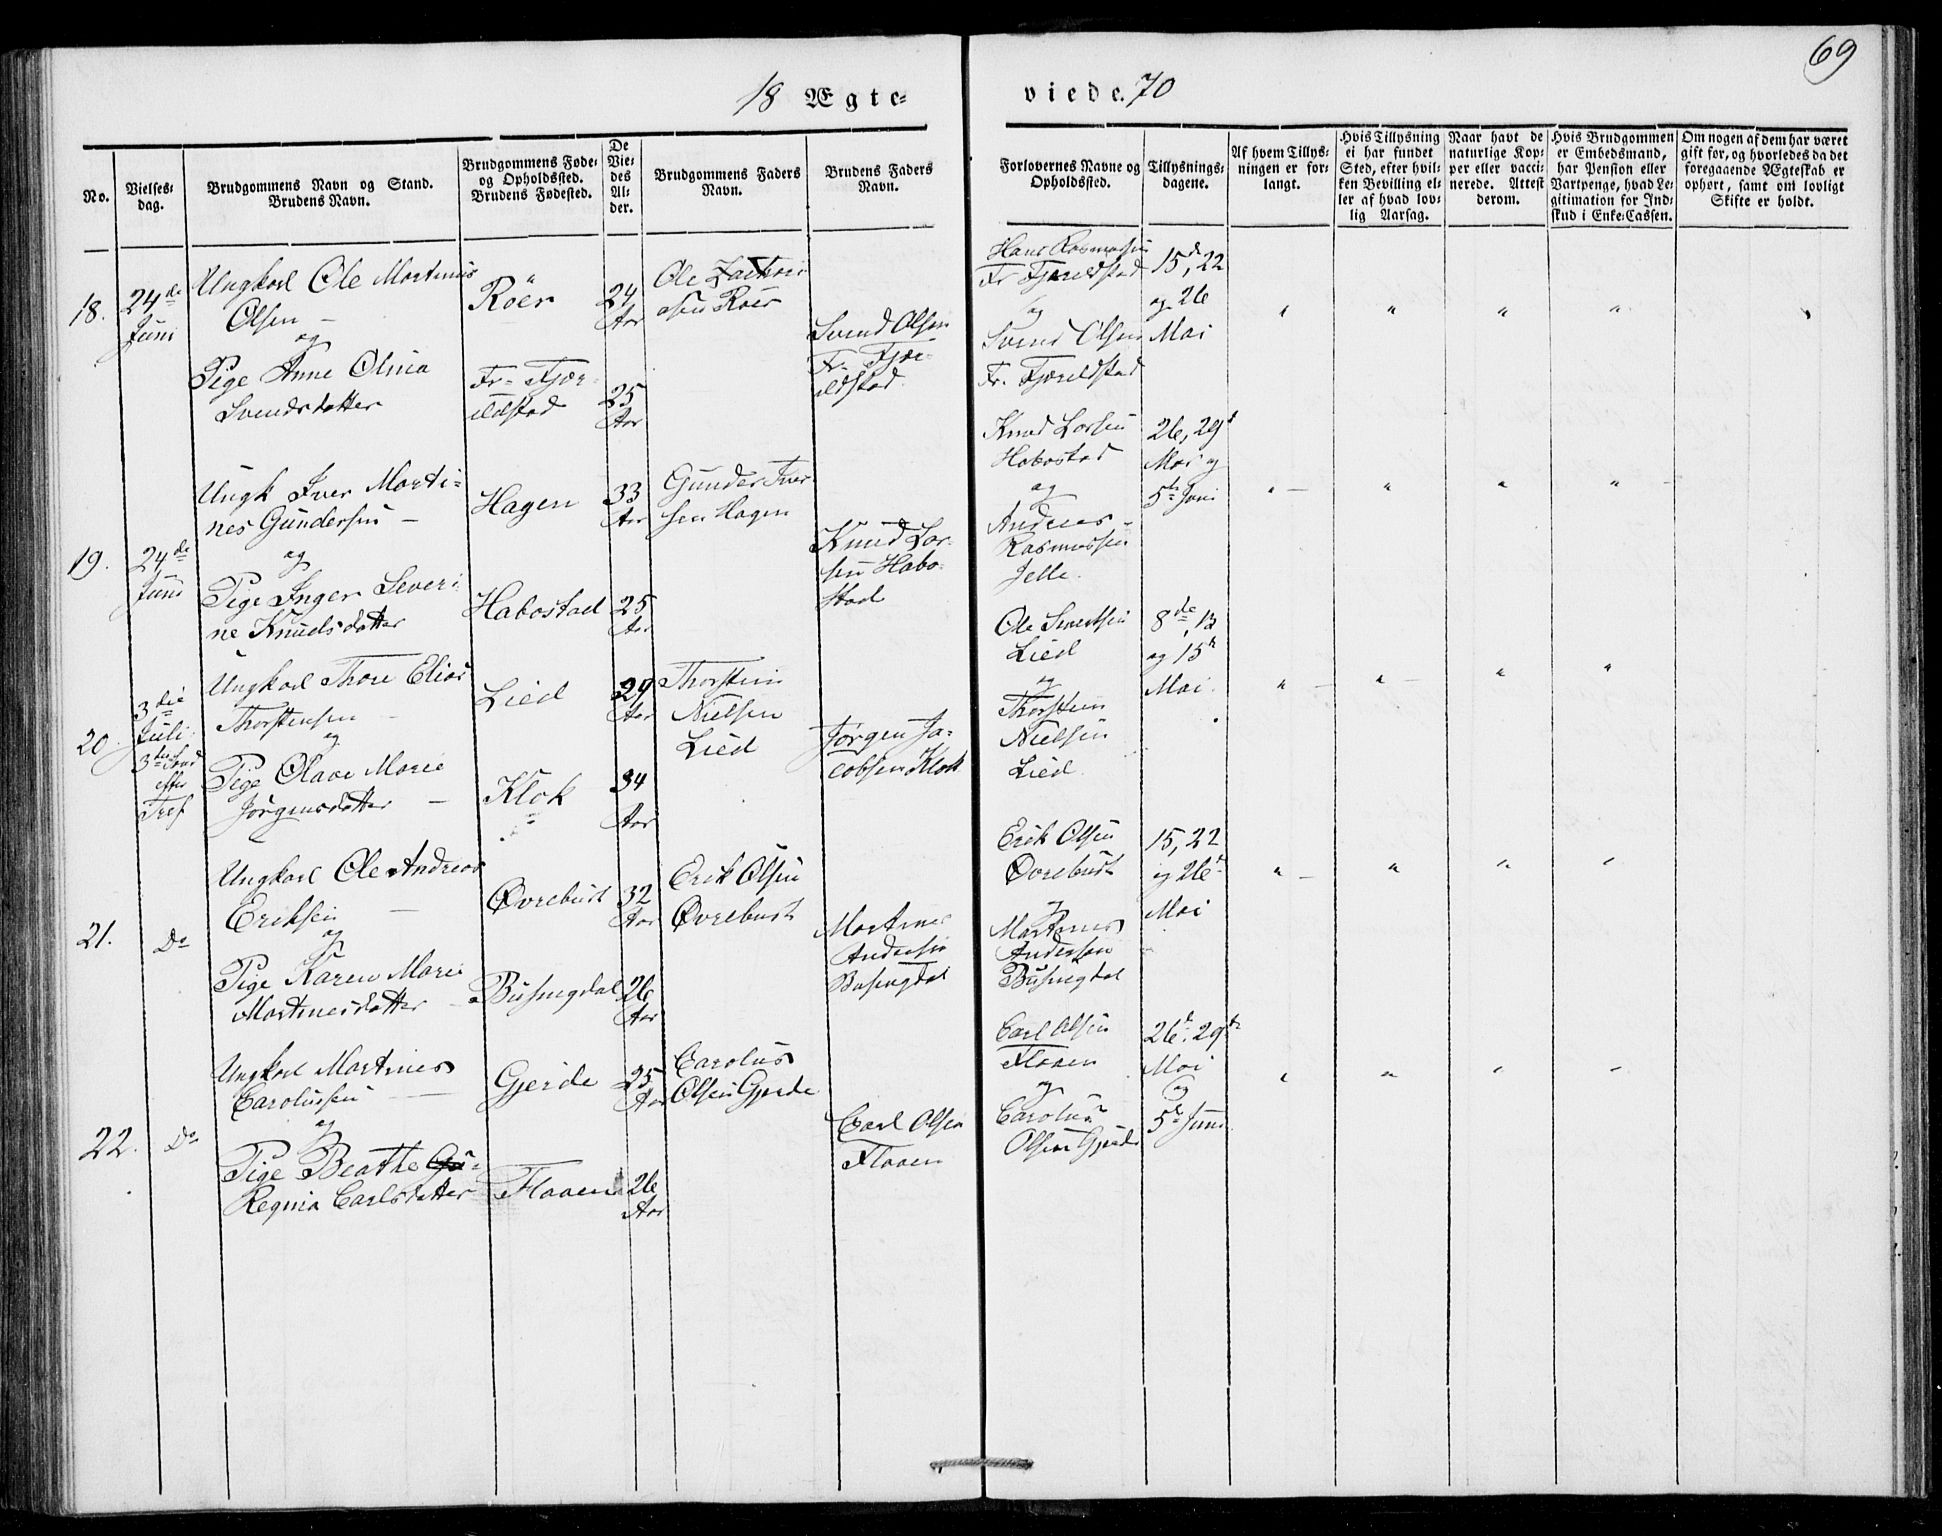 69
18 Ægte-
viede. 70
No.
Vielses-
dag.
Brudgommens Navn og Stand.
Brudens Navn.
Brudgommens Føde-
og Opholdssted.
Brudens Fødested.
De
Vie-
des
Al-
der.
Brudgommens Faders
Navn.
Brudens Faders
Navn.
Forlovernes Navne og
Opholdssted.
Tillysnings-
dagene.
Af hvem Tillys-
ningen er for-
langt.
Hvis Tillysning
ei har fundet
Sted, efter hvil-
ken Bevilling el-
ler af hvad lov-
lig Aarsag.
Naar havt de
naturlige Kop-
per eller vacci-
nerede. Attest
derom.
Hvis Brudgommen
er Embedsmand,
har Pension eller
Vartpenge, hvad Le-
gitimation for Ind-
skud i Enke-Cassen.
Om nogen af dem har været
gift før, og hvorledes da det
foregaaende Ægteskab er
ophørt, samt om lovligt
Skifte er holdt.
18.
24de
Juni
Ungkarl Ole Martinus
Olsen —
og
Pige Anne Olina
Svendsdatter
Roer
Fr- Fjær-
ildstad
24
Aar
25
Aar
Ole Zacharia-
sen Roer
Svend Olsen
Fr. Fjæ-
ildstad.
Hans Rasmussen
Fr Fjæreldstad
og
Svend Olsen
Fr. Fjæreldstad
15d, 22
og 26
Mai
19.
24de
Juni
Ungk Iver Marti-
nes Gundersen —
og
Pige Inger Severi-
ne Knudsdatter
Hagen
Habostad
33
Aar
25
Aar
Gunder Iver
sen Hagen
Knud Lar-
sen Habo-
stad
Knud Larsen
Habostad
og
Andreas
Rasmussen
Jelle.
26, 29d
Mai og
5te Juni
20.
3die
Juli
3die Sønd
efter
Tref
Ungkarl Thore Elias
Thorstensen —
og
Pige Olave Marie
Jørgensdatter —
Lied
Klok
29
Aar
34
Aar
Thorstein
Nielsen
Lied
Jørgen Ja-
cobsen Klok
Ole Sivertsen
Lied
og
Thorstein
Nielsen
Lied.
8de, 13
og 15de
Mai.
21.
Do
Ungkarl Ole Andreas
Eriksen —
og
Pige Karen Marie
Martinesdatter
Øvrebust
Busengdal
32
Aar
26
Aar
Erik Olsen
Øvrebust
Martines
Andersen
Busengdal
Erik Olsen
Øvrebust
og
Martines
Andersen
Busengdal
15, 22
og 26d
Mai
22.
Do
Ungkarl Martines
Carolussen —
og
Pige Beathe
Regina Carlsdatter
Gjerde
Flaaen
25
Aar
26
Aar
Carolus
Olsen Gjerde
Carl Olsen
Flaaen
Carl Olsen
Flaaen
og
Carolus
Olsen Gjerde
26d, 29de
Mai
og
5te Juni